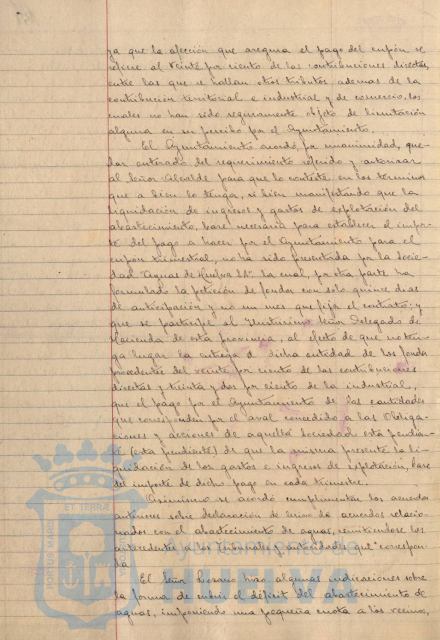 ya que la afección que asegura el pago del cupón se
refiere al veinte por ciento de las contribuciones directas,
entre las que se hallan otros tributos ademas de la
contribución territorial e industrial y de comercio, los
cuales no han sido seguramente objeto de limitación
alguna en su percibo por el Ayuntamiento.
El Ayuntamiento acordó, por unanimidad, que-
dar enterado del requerimiento referido y autorizar
al Señor Alcalde para que lo conteste en los terminos
que a bien lo tenga, si bien manifestando que la
liquidación de ingresos y gastos de explotación del
abastecimiento, base necesaria para establecer el impor-
te del pago a hacer por el Ayuntamiento para el
cupón trimestral, no ha sido presentada por la Socie-
dad "Aguas de Huelva SA" la cual, por otra parte ha
formulado la petición de fondos con solo quince dias
de anticipación y no un mes que fija el contrato; y
que se participe al Ilustrisimo Señor Delegado de
Hacienda de esta provincia, al efecto de que no ten-
ga lugar la entrega a dicha entidad de los fondos
procedentes del veinte por ciento de las contribuciones
directas y treinta y dos por ciento de la industrial,
que el pago por el Ayuntamiento de las cantidades
que corresponden por el aval concedido a las Obliga-
ciones y acciones de aquella Sociedad está pendien-
te (esta pendiente) de que la misma presente la li-
quidación de los gastos e ingresos de explotación, base
del importe de dicho pago en cada trimestre.
Asimismo se acordó cumplimentar los acuerdos
anteriores sobre declaración de lesivo de acuerdos relacio-
nados con el abastecimiento de aguas, remitiendose los
antecedentes a los Tribunales y autoridades que correspon-
da
El Señor hizo algunas indicaciones sobre
la forma de cubrir el déficit del abastecimiento de
aguas, imponiendo una pequeña cuota a los vecinos,
PORTUS MARIS ET TERRÆ CUSTODIA
Ayuntamiento de
HUELVA